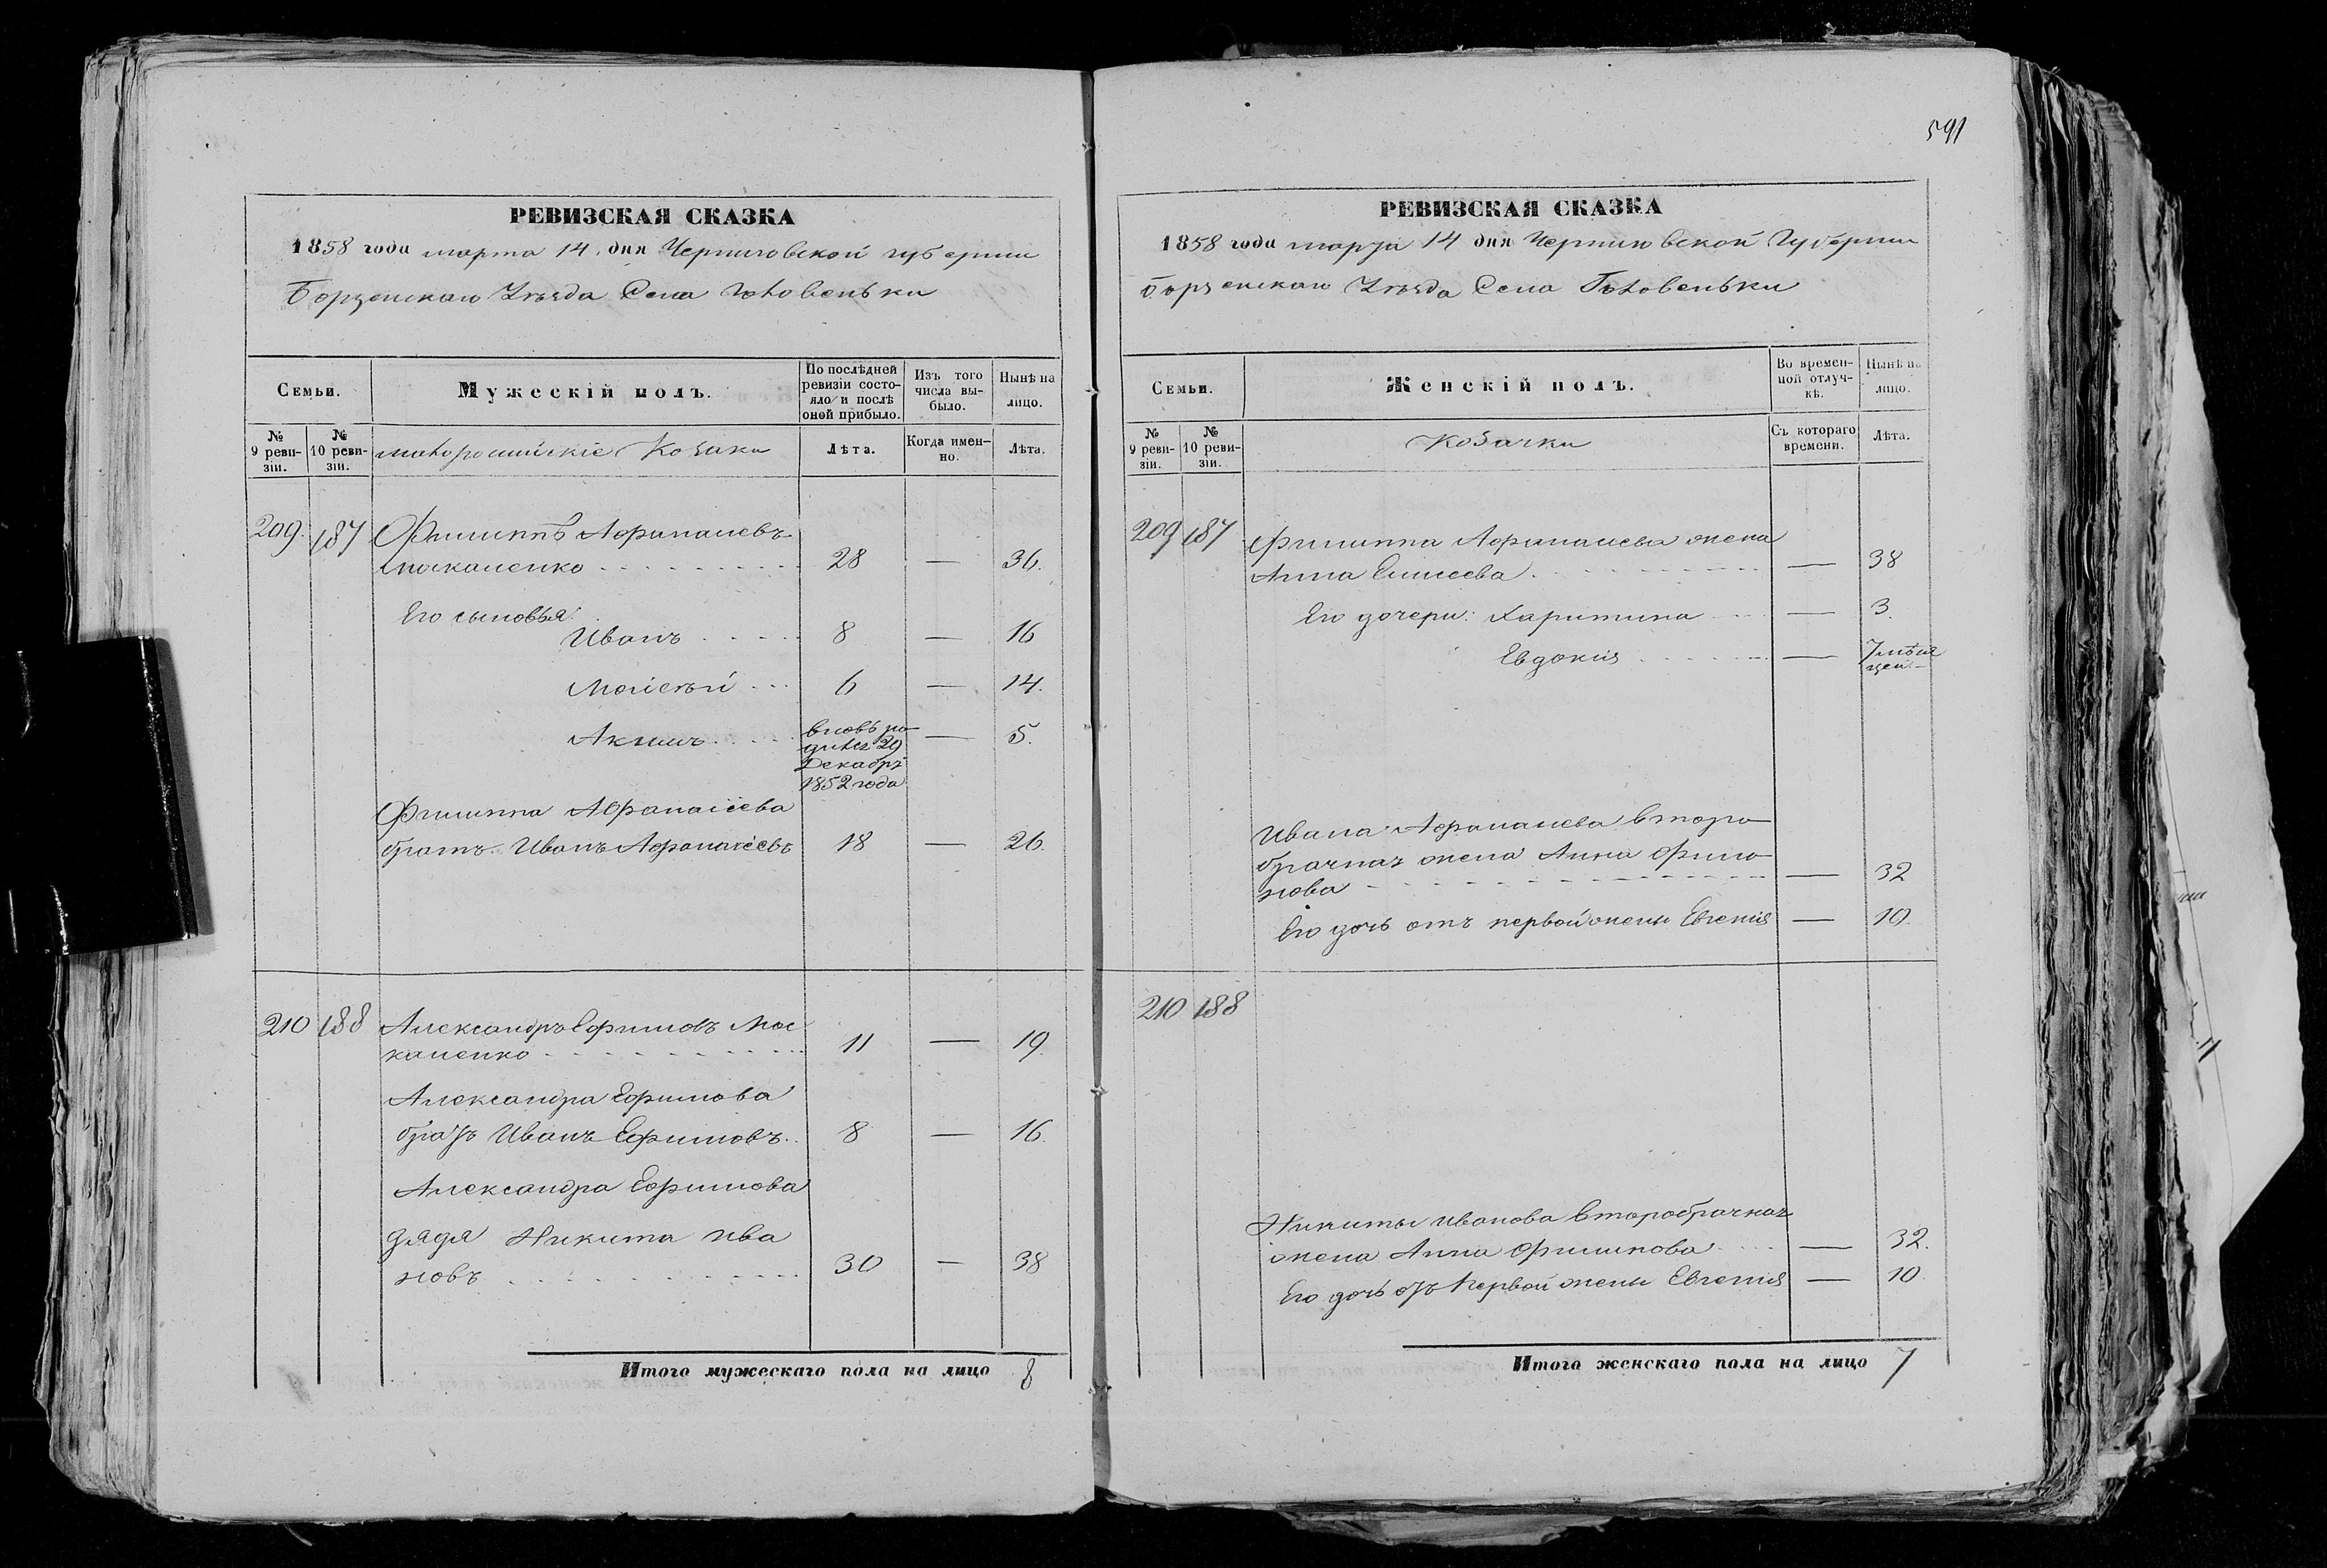 РЕВИЗСКАЯ СКАЗКА
1858 года марта 14 дня Черниговской губернии
Борзенскаго Уезда Села Головеньки
Семьи.
Мужескій полъ.
По послѣдней ревизіи состояло и послѣ оной прибыло.
Изъ того числа выбыло.
Нынѣ на лицо.
№ 9 ревизіи.
№ 10 ревизіи.
малороссійскіе Козаки
Лѣта.
Когда именно.
Лѣта.
209 187 Филиппъ Афанасиевъ
Москаленко 28 — 36.
Его сыновья:
Иванъ 8 — 16
Моісей 6 — 14.
Акимъ вновь ро- — 5.
дился 29
Декабря
1852 года
Филиппа Афанасіева
братъ Иванъ Афанасіевъ 18 — 26.
210 188 Александръ Ефимовъ Мос
каленко 11 — 19.
Александра Ефимова
братъ Иванъ Ефимовъ 8 — 16.
Александра Ефимова
дядя Никита Ива
новъ 30 — 38
Итого мужескаго пола на лицо 8
591
РЕВИЗСКАЯ СКАЗКА
1858 года марта 14 дня Черниговской Губернии
Борзенскаго Уезда Села Головеньки
Семьи.
Женскій полъ.
Во временной отлучкѣ.
Нынѣ на лицо.
№ 9 ревизіи.
№ 10 ревизіи.
Козачки
Съ котораго времени.
Лѣта.
209 187 Филиппа Афанасиева жена
Анна Елисеева — 38
Его дочери: Харитина — 3.
Евдокия — 7 мѣся
цей
Ивана Афанасиева второ
брачная жена Анна
нова — 32
Его дочь отъ первой жены Евгения — 10.
210 188
Никиты Иванова второбрачная
жена Анна Филипова — 32.
Его дочь отъ первой жены Евгения — 10.
Итого женскаго пола на лицо 7